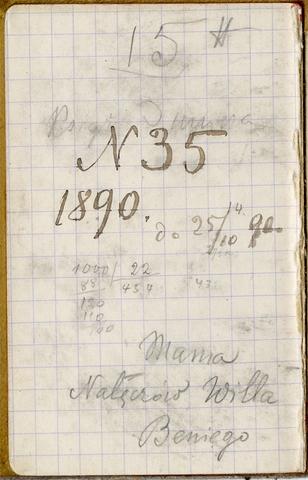 15 #
N 35
1890.
do 25/10 90.
14
1000 / 22
88 454 43
120
110
100
Mama
Nałęczów Willa
Beniego